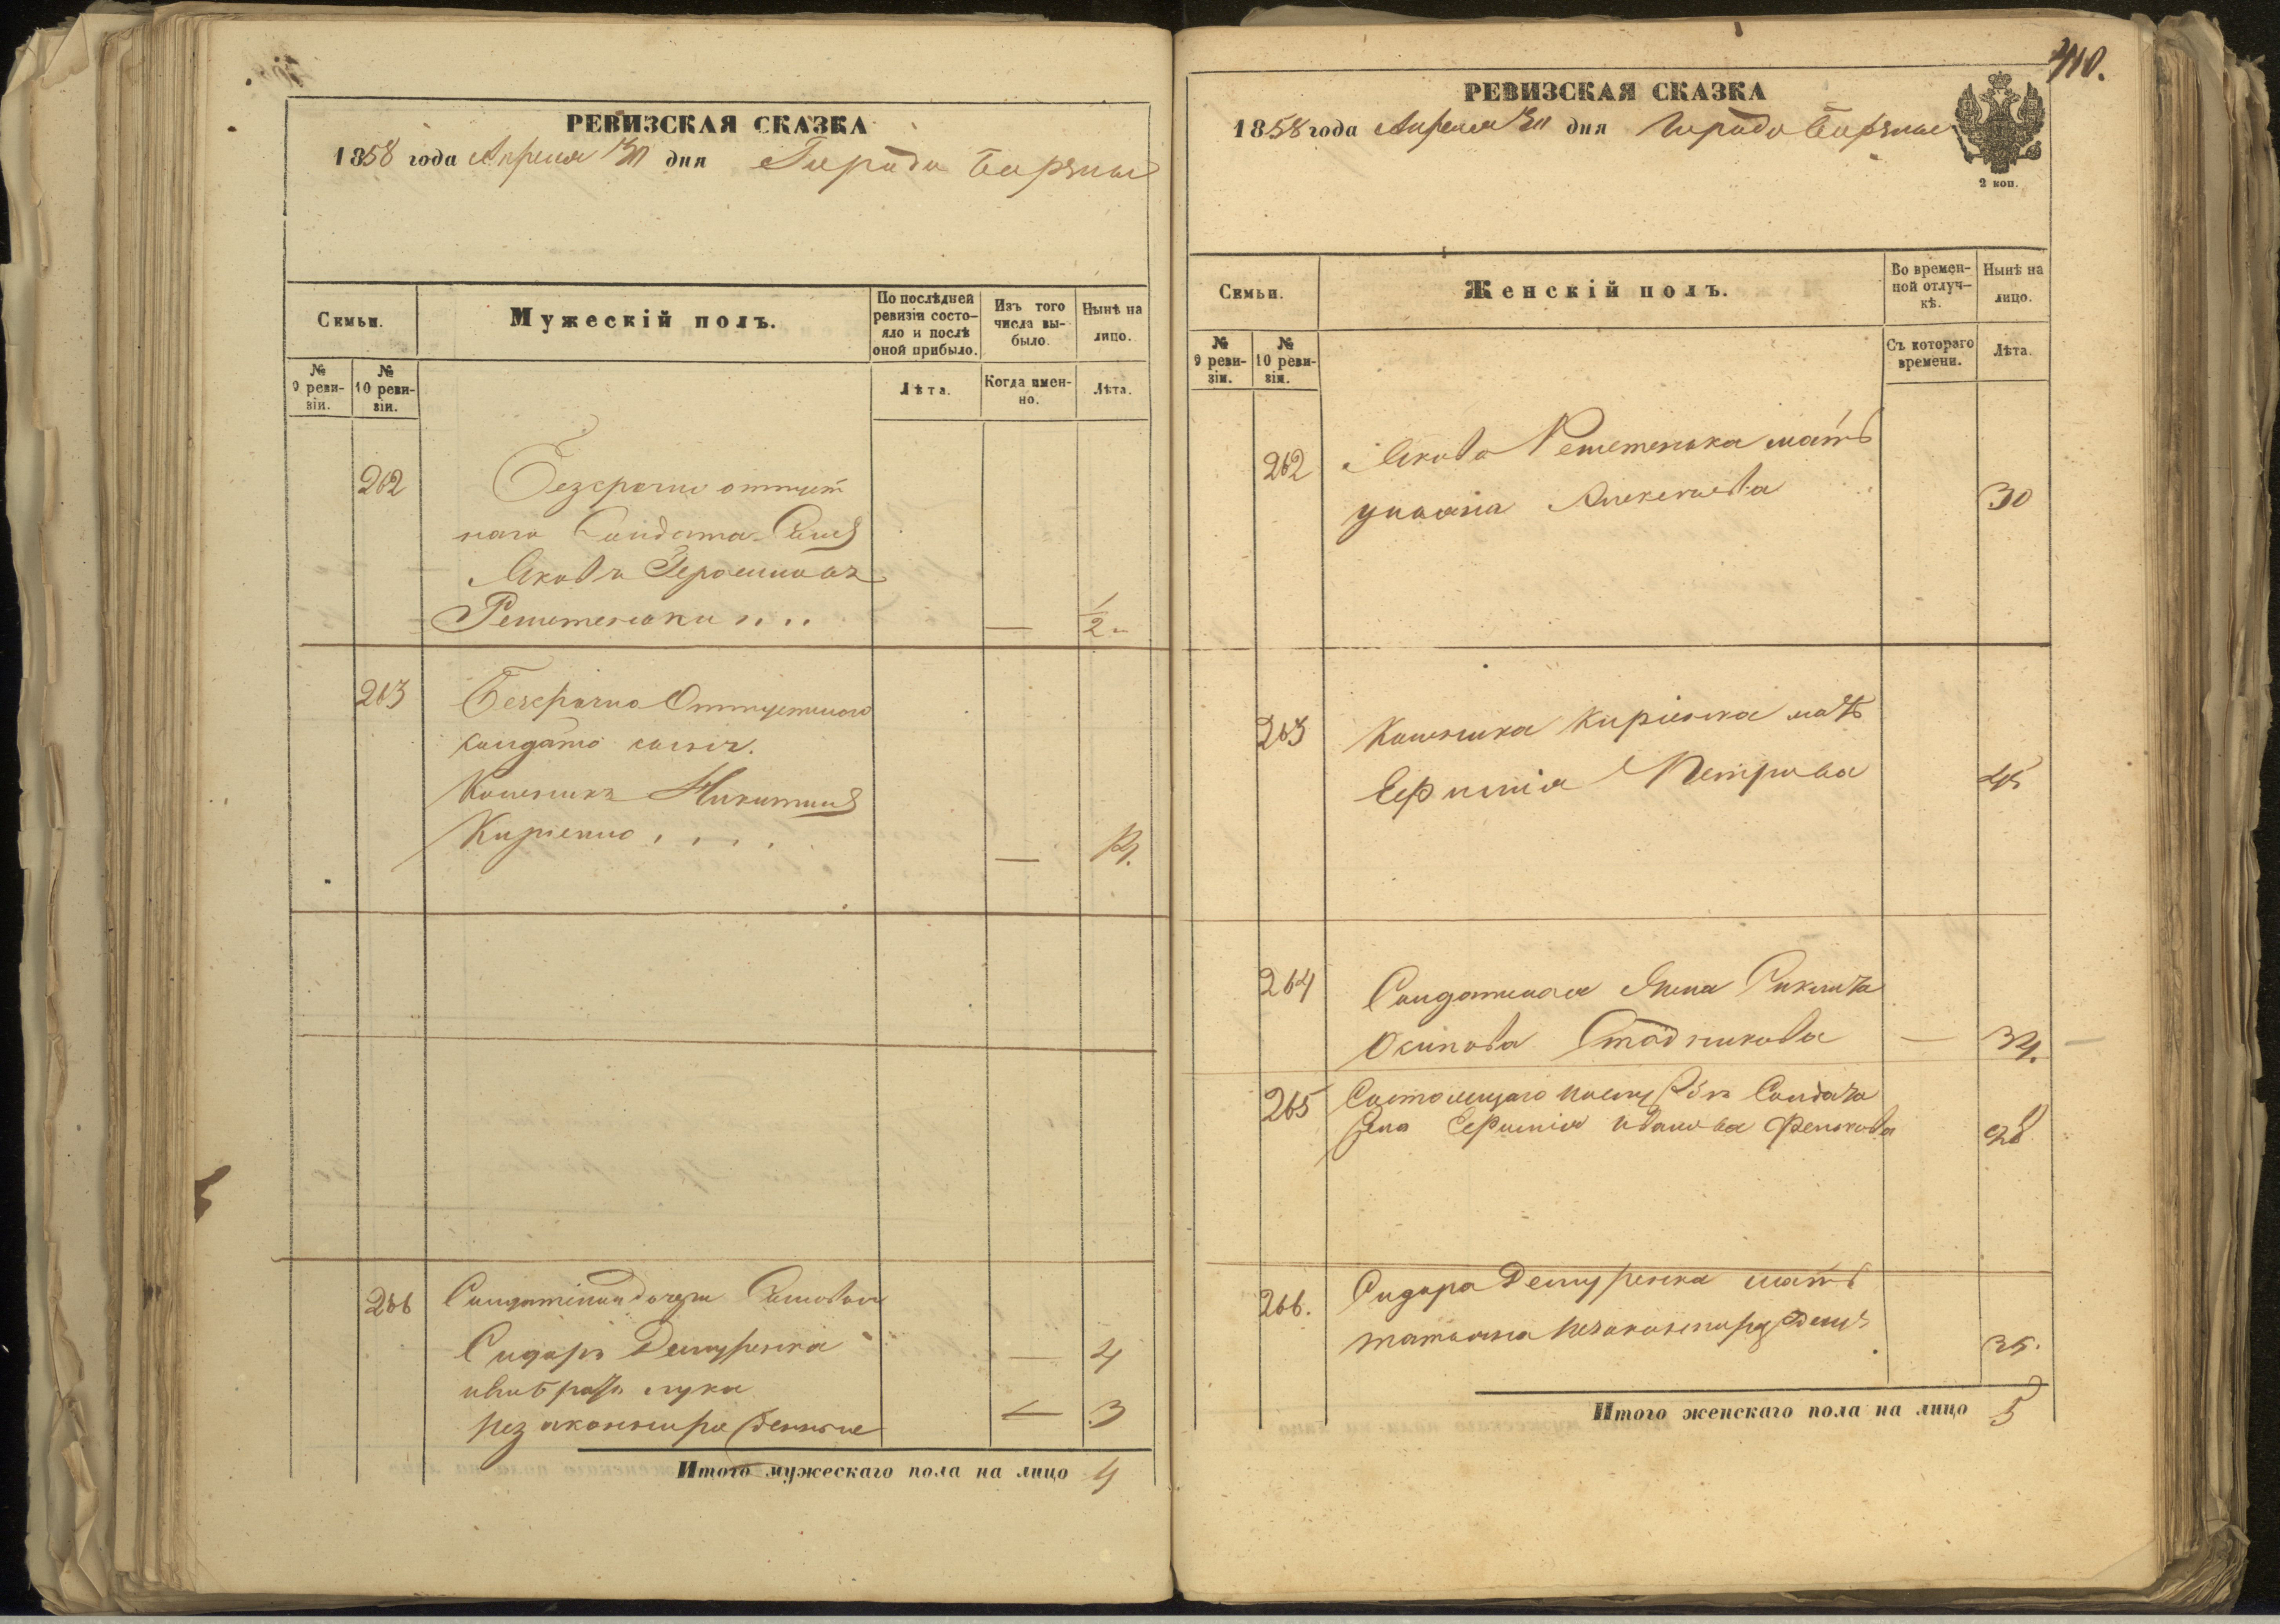 РЕВИЗСКАЯ СКАЗКА
1858 года Апреля дня Города Борзны
Семьи.
Мужескій полъ.
По послѣдней ревизіи состо-
яло и послѣ
оной прибыло.
Изъ того
числа вы-
было.
Нынѣ на
лицо.
№
9 реви-
зіи.
№
10 реви-
зіи.
Лѣта.
Когда имен-
но.
Лѣта.
262 Безсрочно отпуст
наго Солдата Сынъ
Яковъ Герасимовъ
Решетенько — 1/2
263 Безсрочно Отпустного
солдата сынъ.
Никитинъ
Кириенко —
266 Сыновья
Сидоръ Демуренко — 4
его братъ лука
незаконнорожденные — 3
Итого мужескаго пола на лицо 4
410.
РЕВИЗСКАЯ СКАЗКА
1858 года Апреля дня Города Борзны
2 коп.
Семьи.
Женскій полъ.
Во времен-
ной отлуч-
кѣ.
Нынѣ на
лицо.
№
9 реви-
зіи.
№
10 реви-
зіи.
Съ котораго
времени.
Лѣта.
262 Якова Решетенька мать
Алексеева 30
263 Кириенка мать
Ефимія Петрова 45
264 Солдатская
Осипова Стадникова — 34.
265 Солдата
Жена Ефимія Иванова 28
266. Сидора Демуренка мать
татьяна 35.
Итого женскаго пола на лицо 5